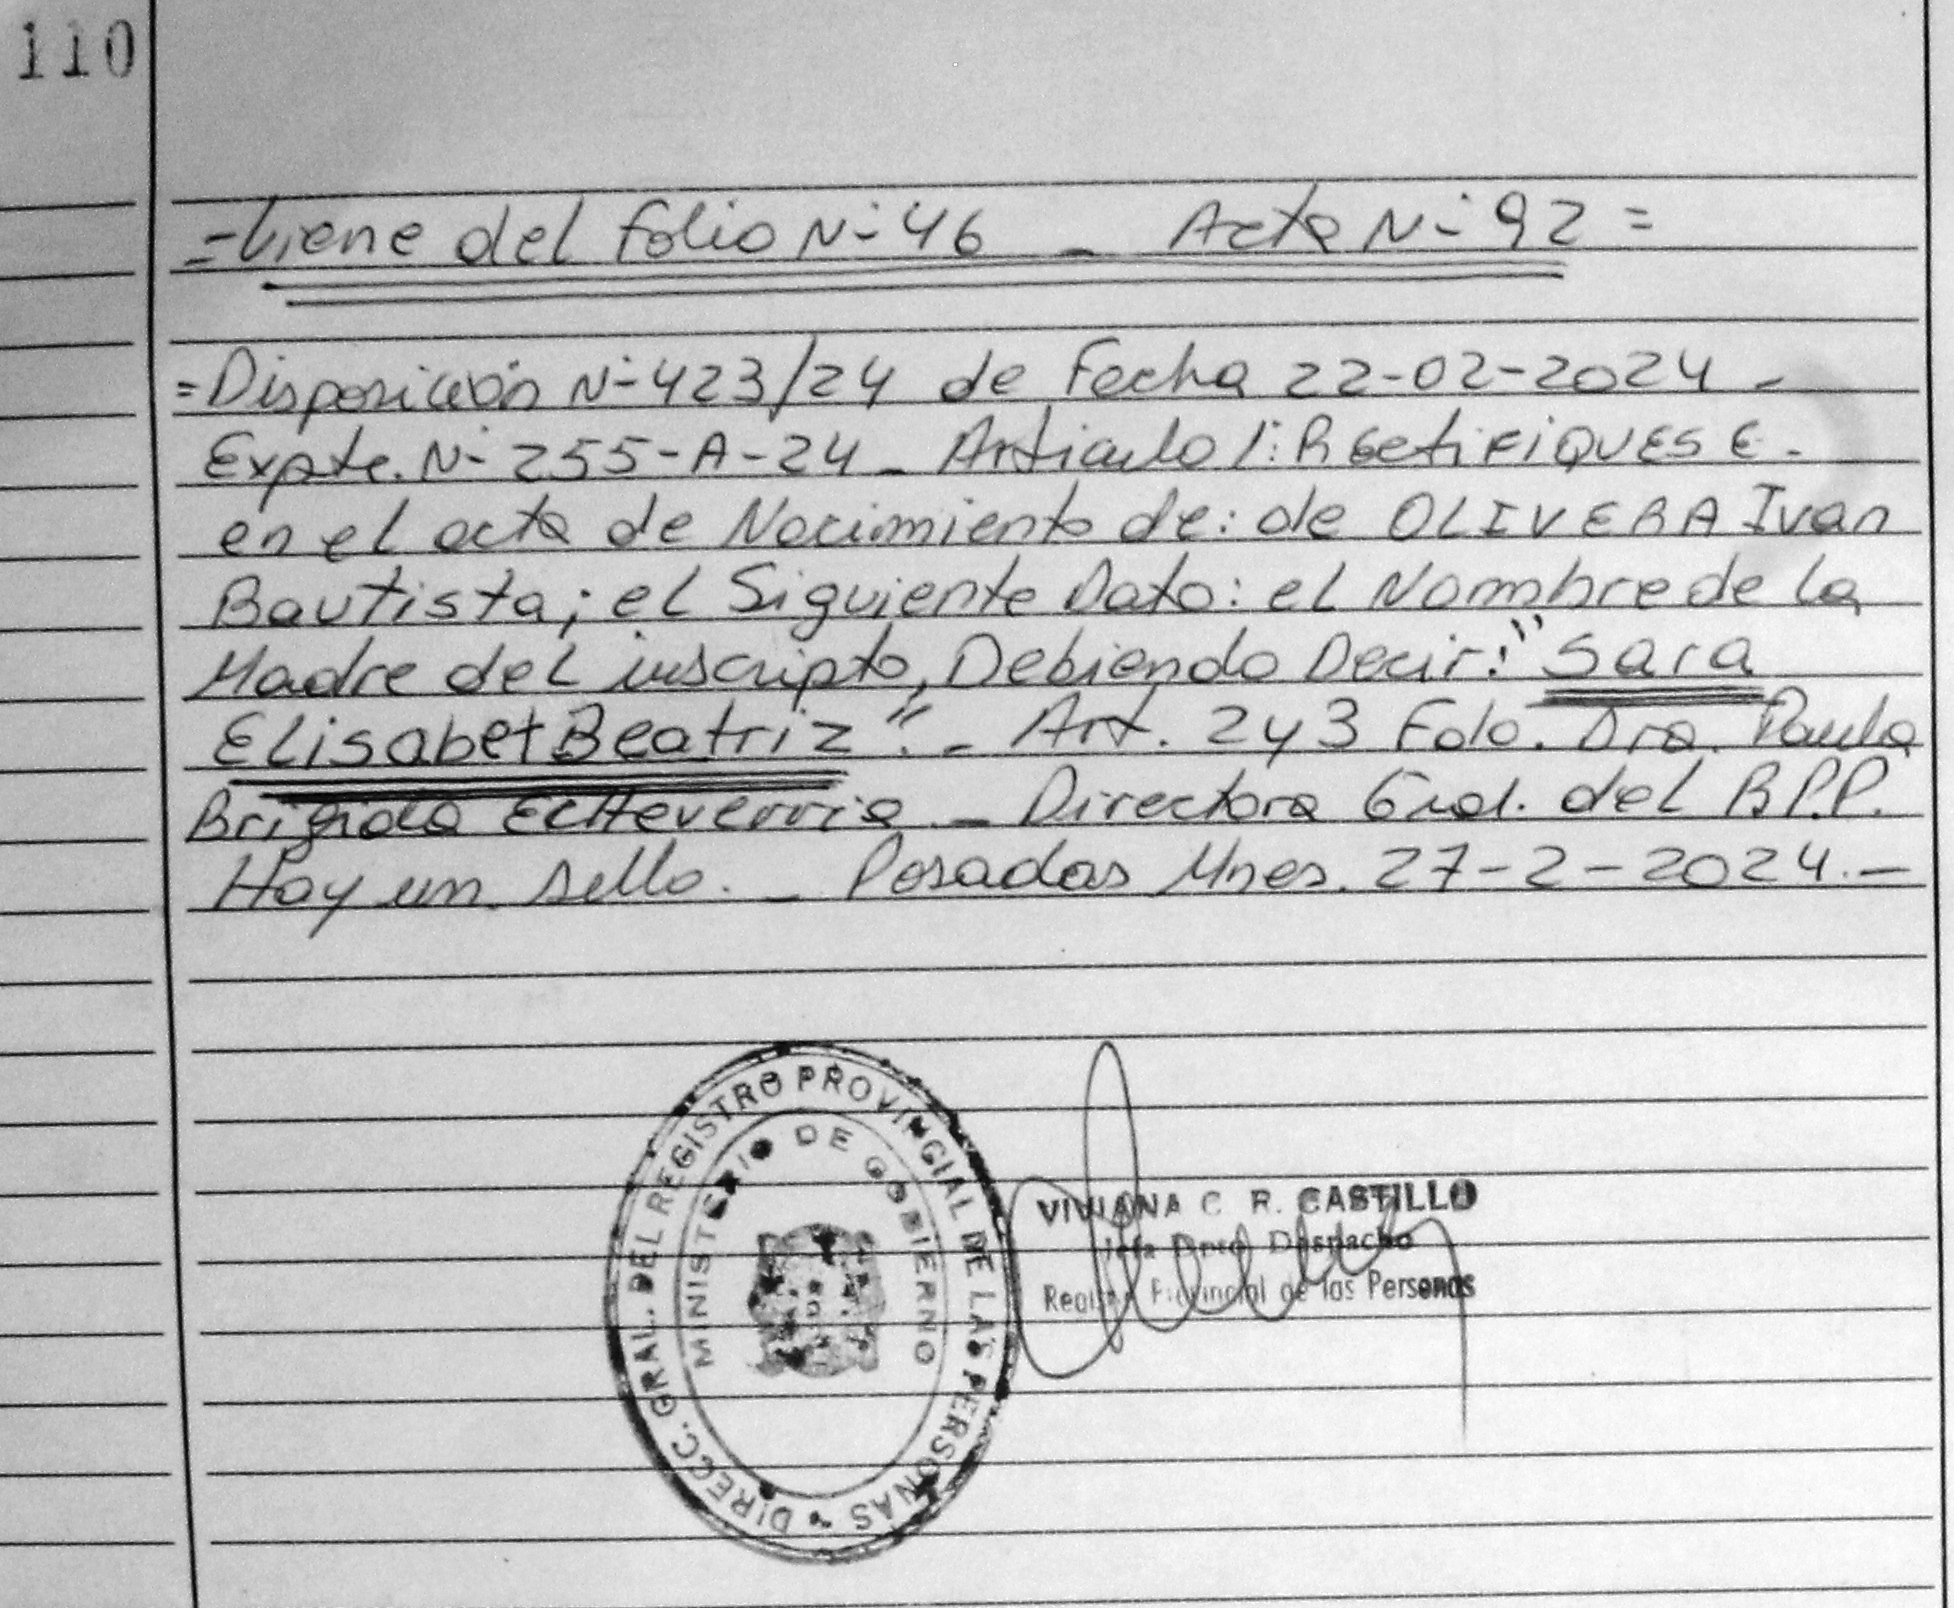 110
=Viene del folio N-46 - Acta N-92=
=Disposición N-423/24 de Fecha 22-02-2024-
Expte. N-255-A-24- Articulo 1: RectiFiQUESE-
en el acta de Nacimiento de: de OLIVERA Ivan
Bautista; el Siguiente Dato: el Nombre de la
Madre del inscripto, Debiendo Decir: "Sara
Elisabet Beatriz".- Art. 2 y 3 Fdo. Dra. Paula
Brigida Echeverria - Directora Gral. del R.P.P.
Hay un sello. - Posadas Mnes. 27-2-2024.-
DIRECC. GRAL. DEL REGISTRO PROVINCIAL DE LAS PERSONAS
MINISTERIO DE GOBIERNO
VIVIANA C. R. CASTILLO
Jefa Dpto Despacho
Registro Provincial de las Personas